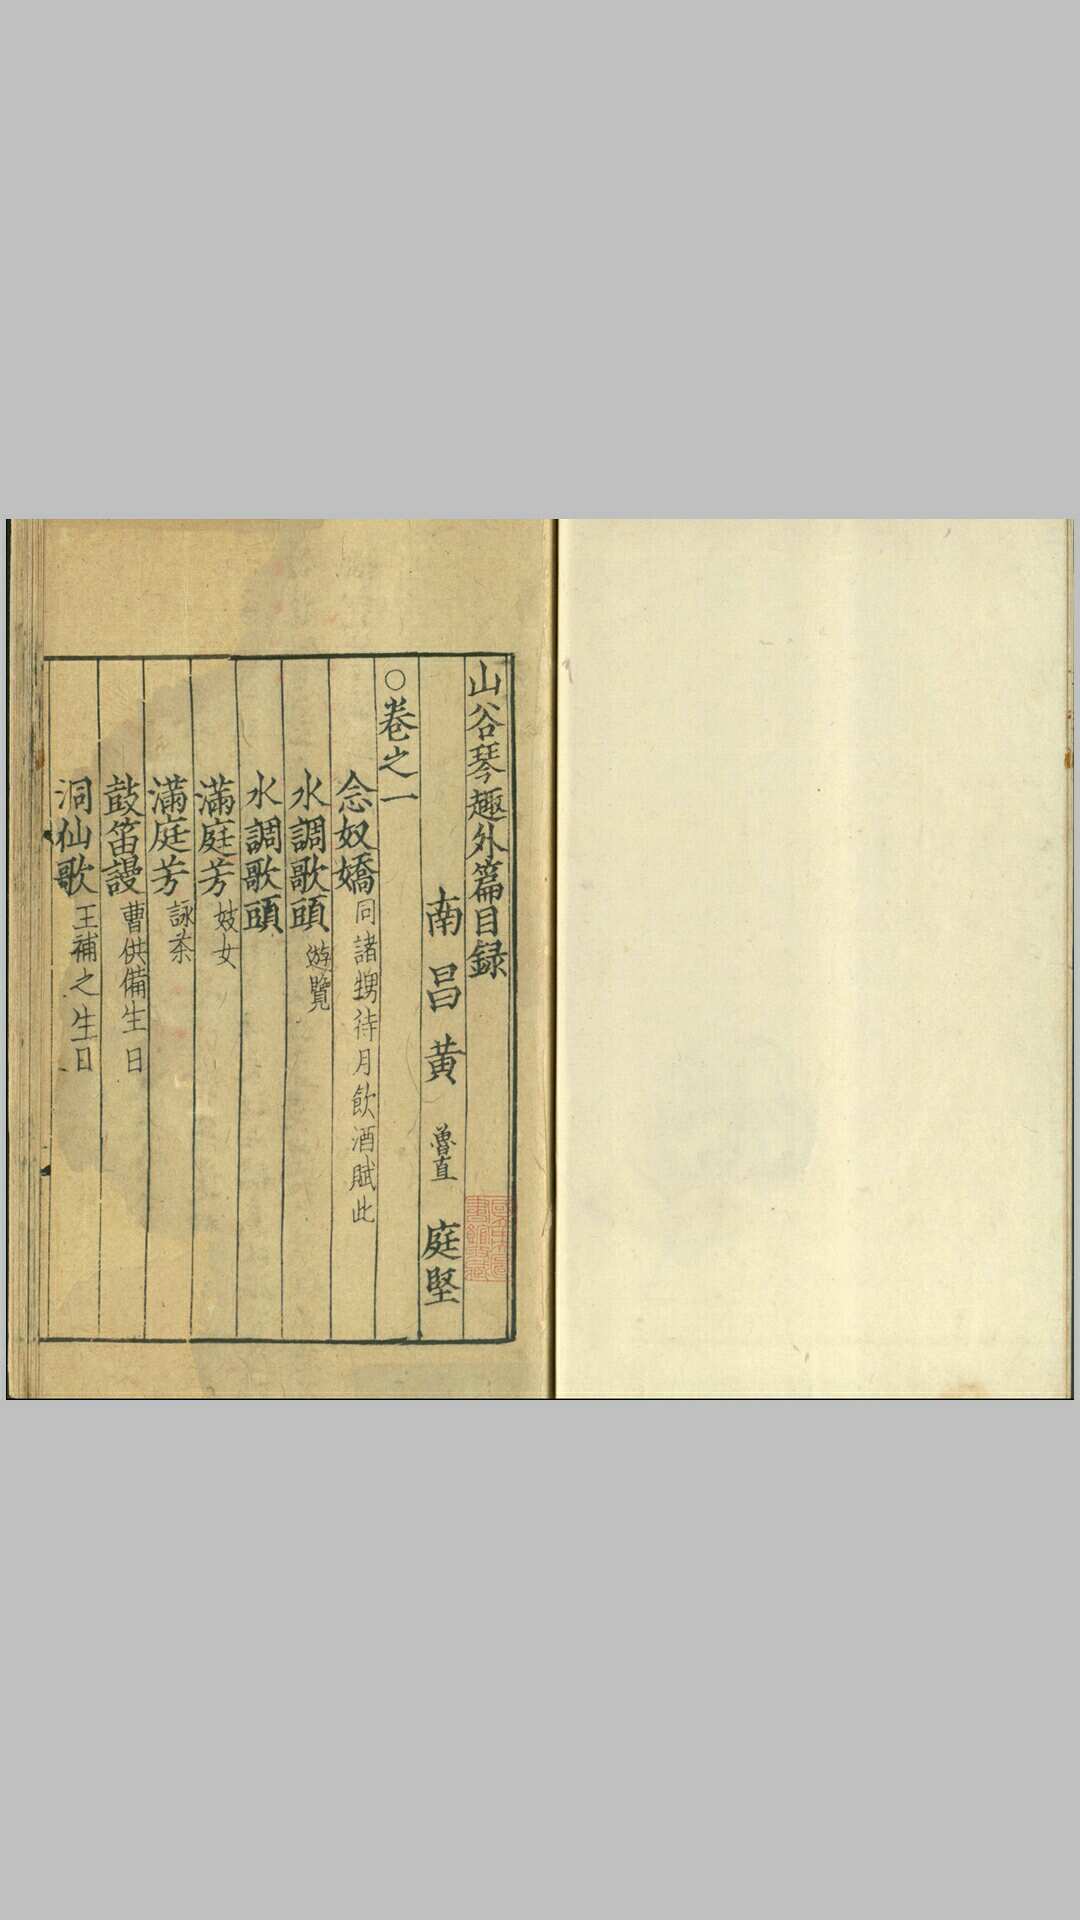 山谷琴趣外篇目録
南昌黄 魯直 庭堅
○卷之一
念奴嬌 同諸甥待月飲酒賦此
水調歌頭 遊覽
水調歌頭
滿庭芳 妓女
滿庭芳 詠茶
鼓笛謾 曹供備生日
洞仙歌 王補之生日